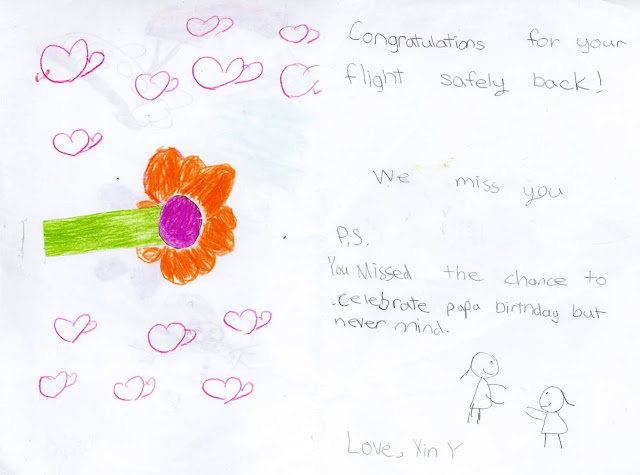 Congratulations for your
flight safely back!
We miss you
P.S.
You Missed the chance to
celebrate papa birthday but
never mind.
Love, Xin Y